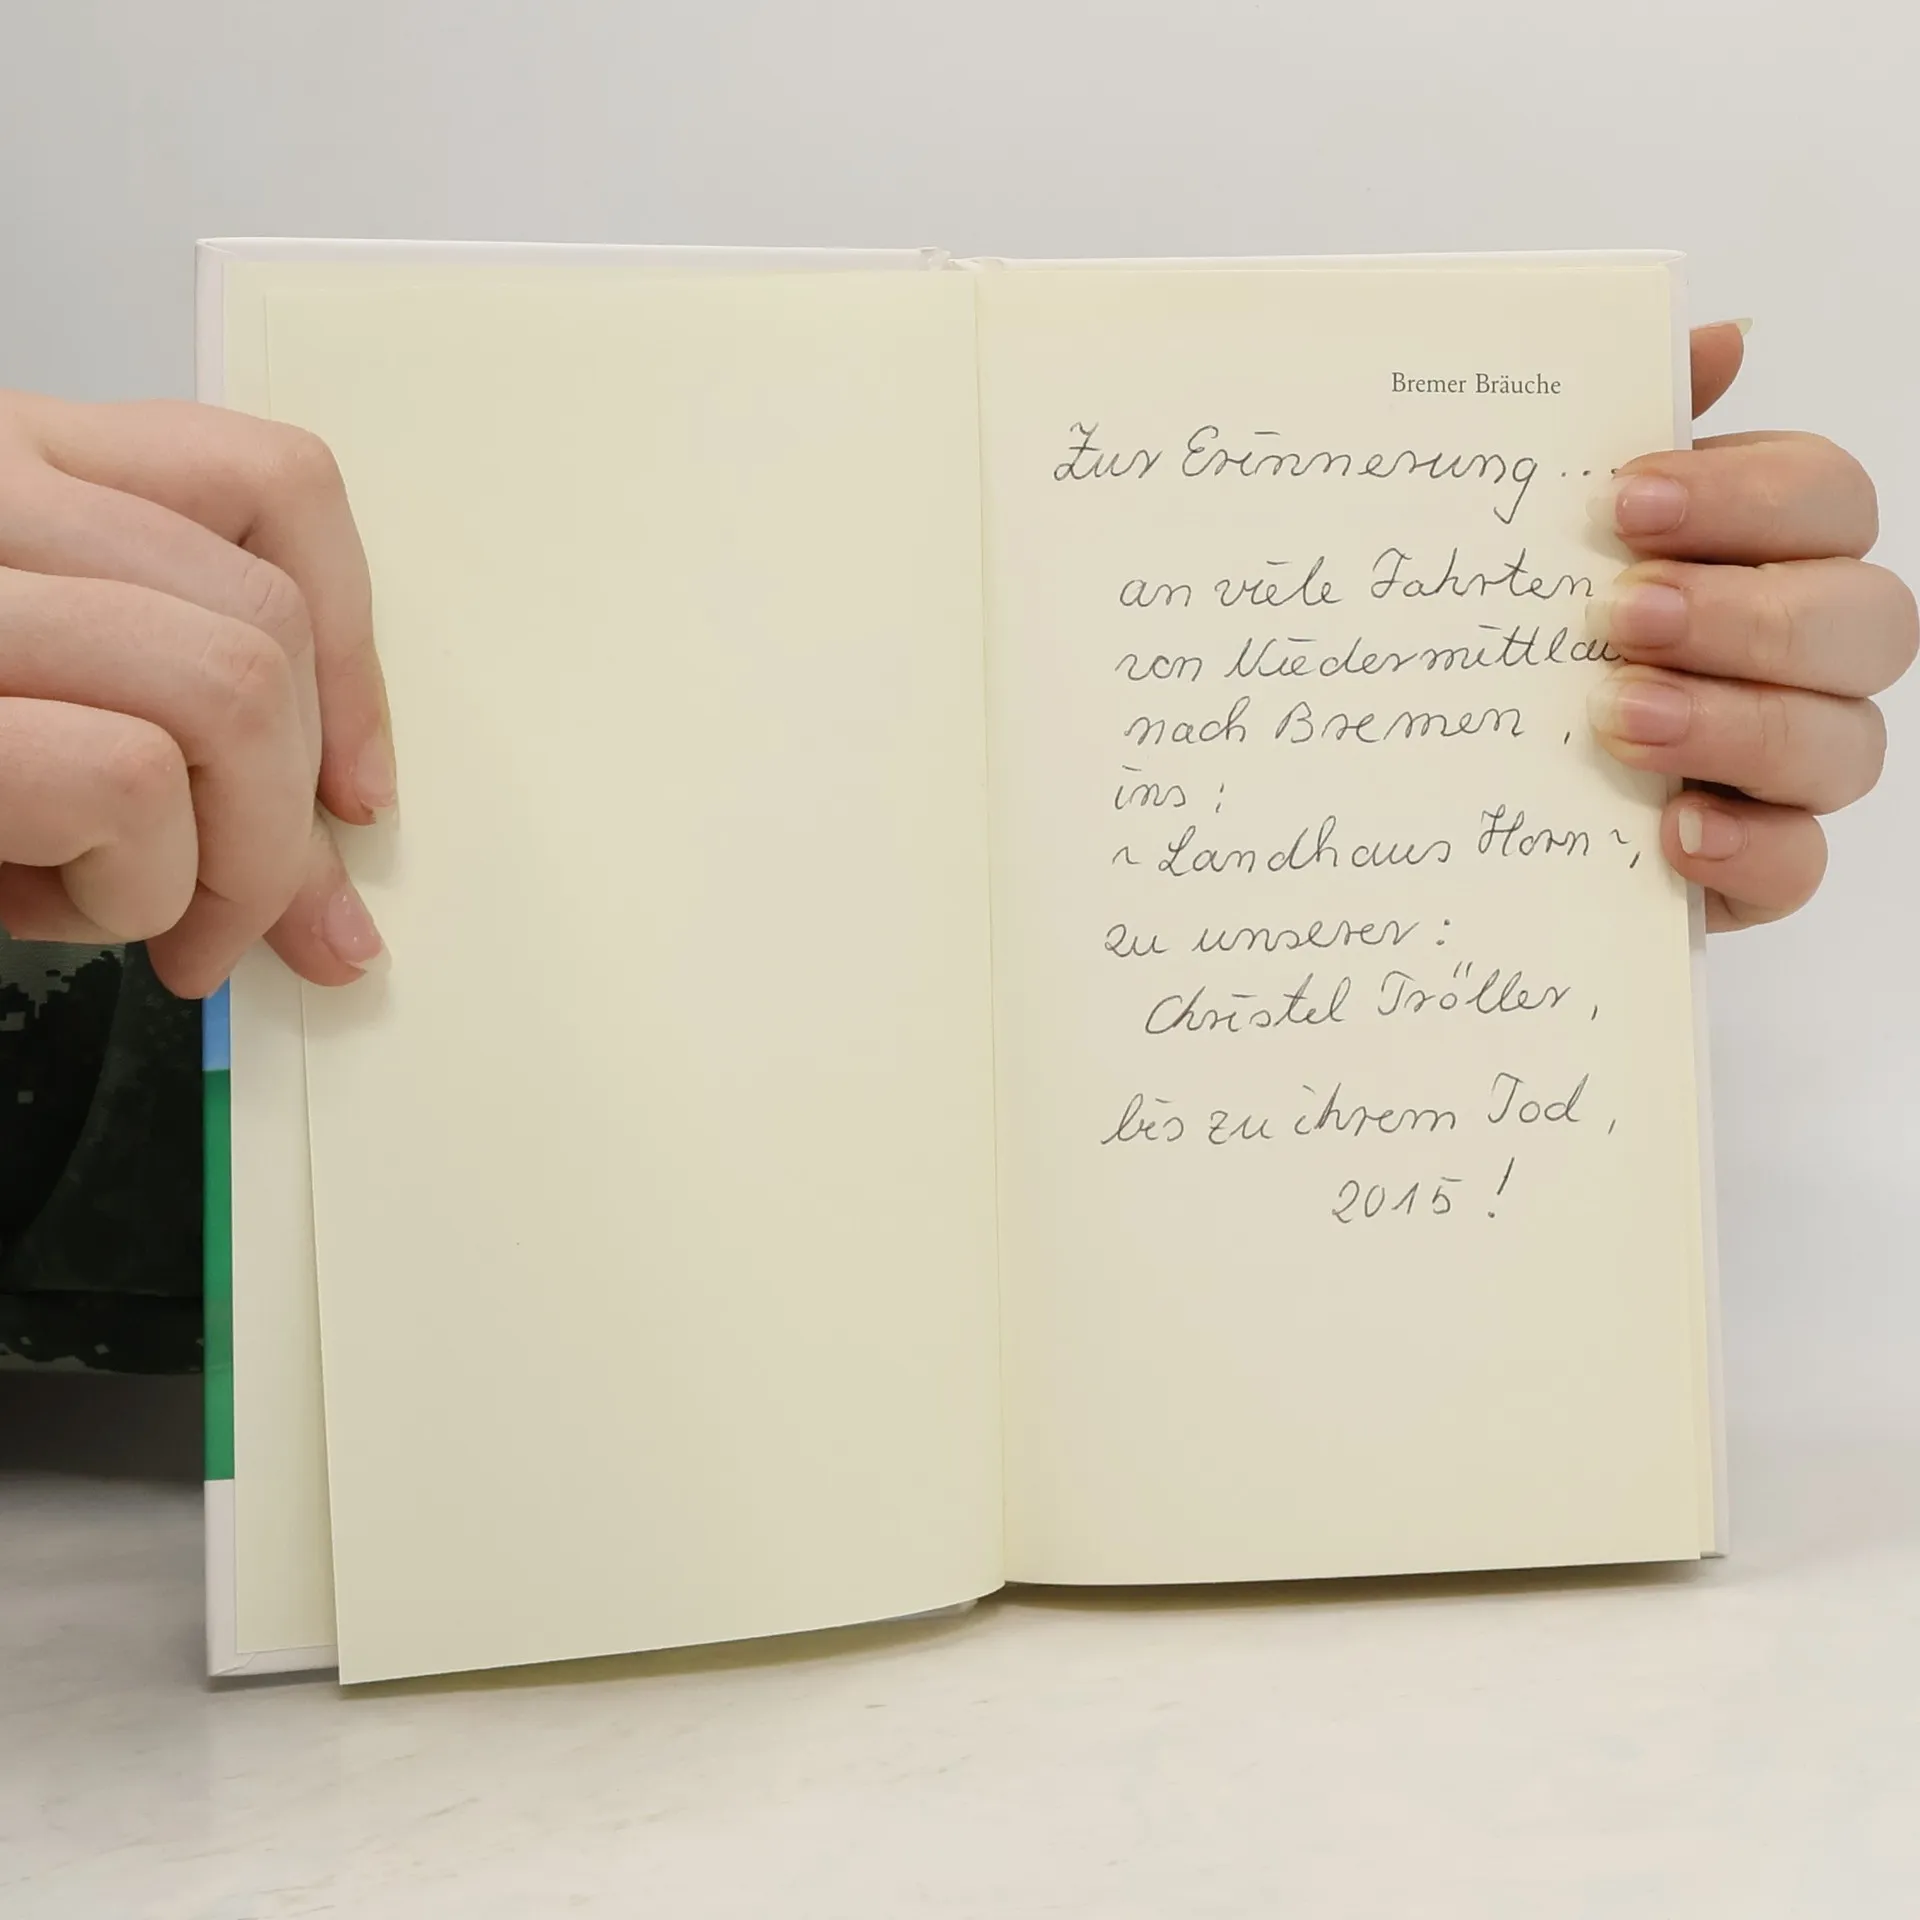 Bremer Bräuche
Zur Erinnerung ...
an viele Fahrten
von
nach Bremen,
ins:
~ Landhaus Horn ~,
zu unserer:
Christel Tröller,
bis zu ihrem Tod,
2015!